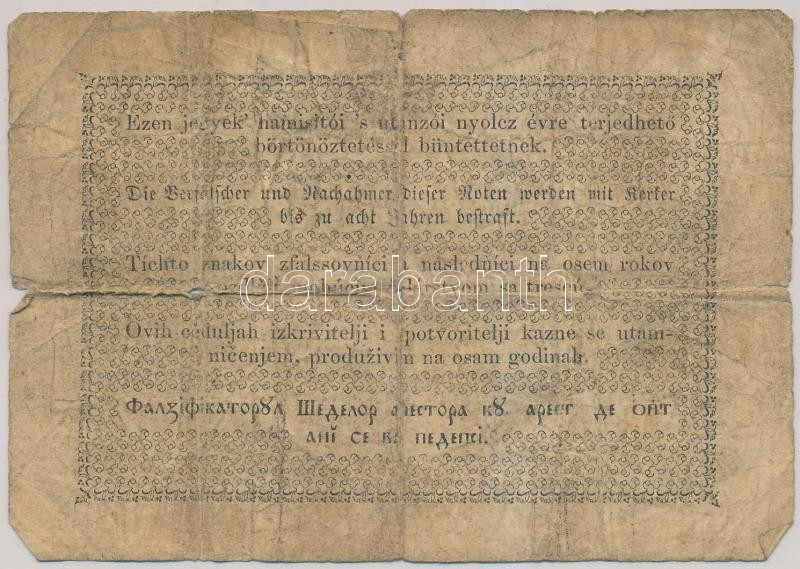 Ezen jegyek' hamisítói 's utánzói nyolcz évre terjedhető
börtönöztetéssel büntettetnek.
Die Verfälscher und Nachahmer dieser Noten werden mit Kerker
bis zu acht Jahren bestraft.
Tíchto znakov zfalssovníci a následníci na osem rokov
Ovih ceduljah izkrivitelji i potvoritelji kazne se utam-
ničenjem, produživim na osam godinah.
Фалꙁіфікаторꙋл Шеделор ачестора кꙋ арест де опт
анй се ва педепсі.
darabanth